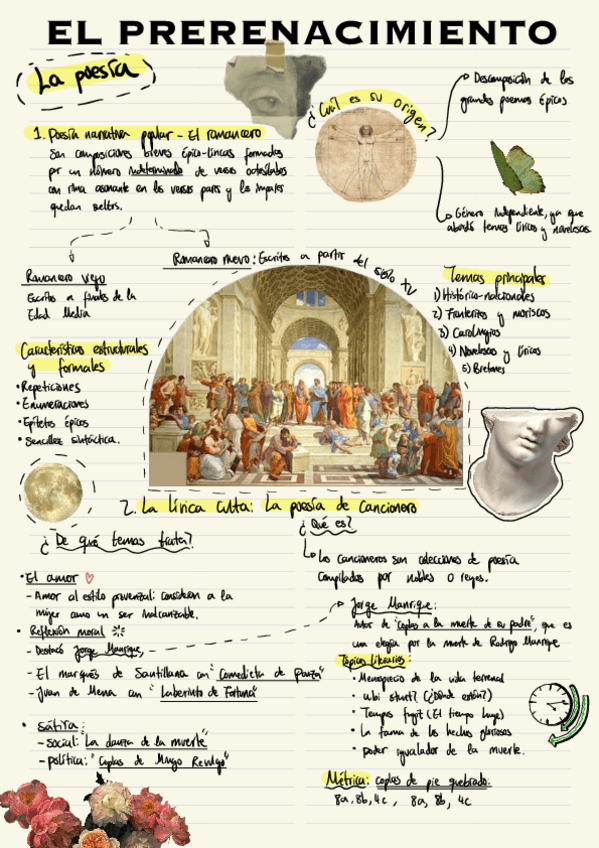 EL PRERENACIMIENTO
La poesía
¿Cuál es su origen?
Descomposición de los
grandes poemas épicos
Género independiente, ya que
abordó temas líricos y novelescos
1. Poesía narrativa popular - El romancero
Son composiciones breves épico-líricas formadas
por un número indeterminado de versos octosílabos
con rima asonante en los versos pares y los impares
quedan sueltos.
Romancero viejo
Escritos a finales de la
Edad Media
Romancero nuevo: Escritos a partir del siglo XV
Temas principales
1) Histórico-nacionales
2) Fronterizos y moriscos
3) Carolingios
4) Novelescos y líricos
5) Bretones
Características estructurales
y formales
• Repeticiones
• Enumeraciones
• Epítetos épicos
• Sencillez sintáctica.
2. La lírica culta: La poesía de cancionero
¿De qué temas trata?
• El amor
- Amor al estilo provenzal: consideran a la
mujer como un ser inalcanzable.
• Reflexión moral
- Destacó Jorge Manrique,
- El marqués de Santillana con "Comedieta de Ponza"
- Juan de Mena con "Laberinto de Fortuna"
• sátira:
- social: "La danza de la muerte"
- política: "Coplas de Mingo Revulgo"
¿Qué es?
Los cancioneros son colecciones de poesía
compilados por nobles o reyes.
Jorge Manrique:
Autor de "Coplas a la muerte de su padre", que es
una elegía por la muerte de Rodrigo Manrique
Tópicos literarios:
• Menosprecio de la vida terrenal
• Ubi sunt? (¿Dónde están?)
• Tempus fugit (El tiempo huye)
• La fama de los hechos gloriosos
• poder igualador de la muerte.
Métrica: coplas de pie quebrado:
8a, 8b, 4c, 8a, 8b, 4c